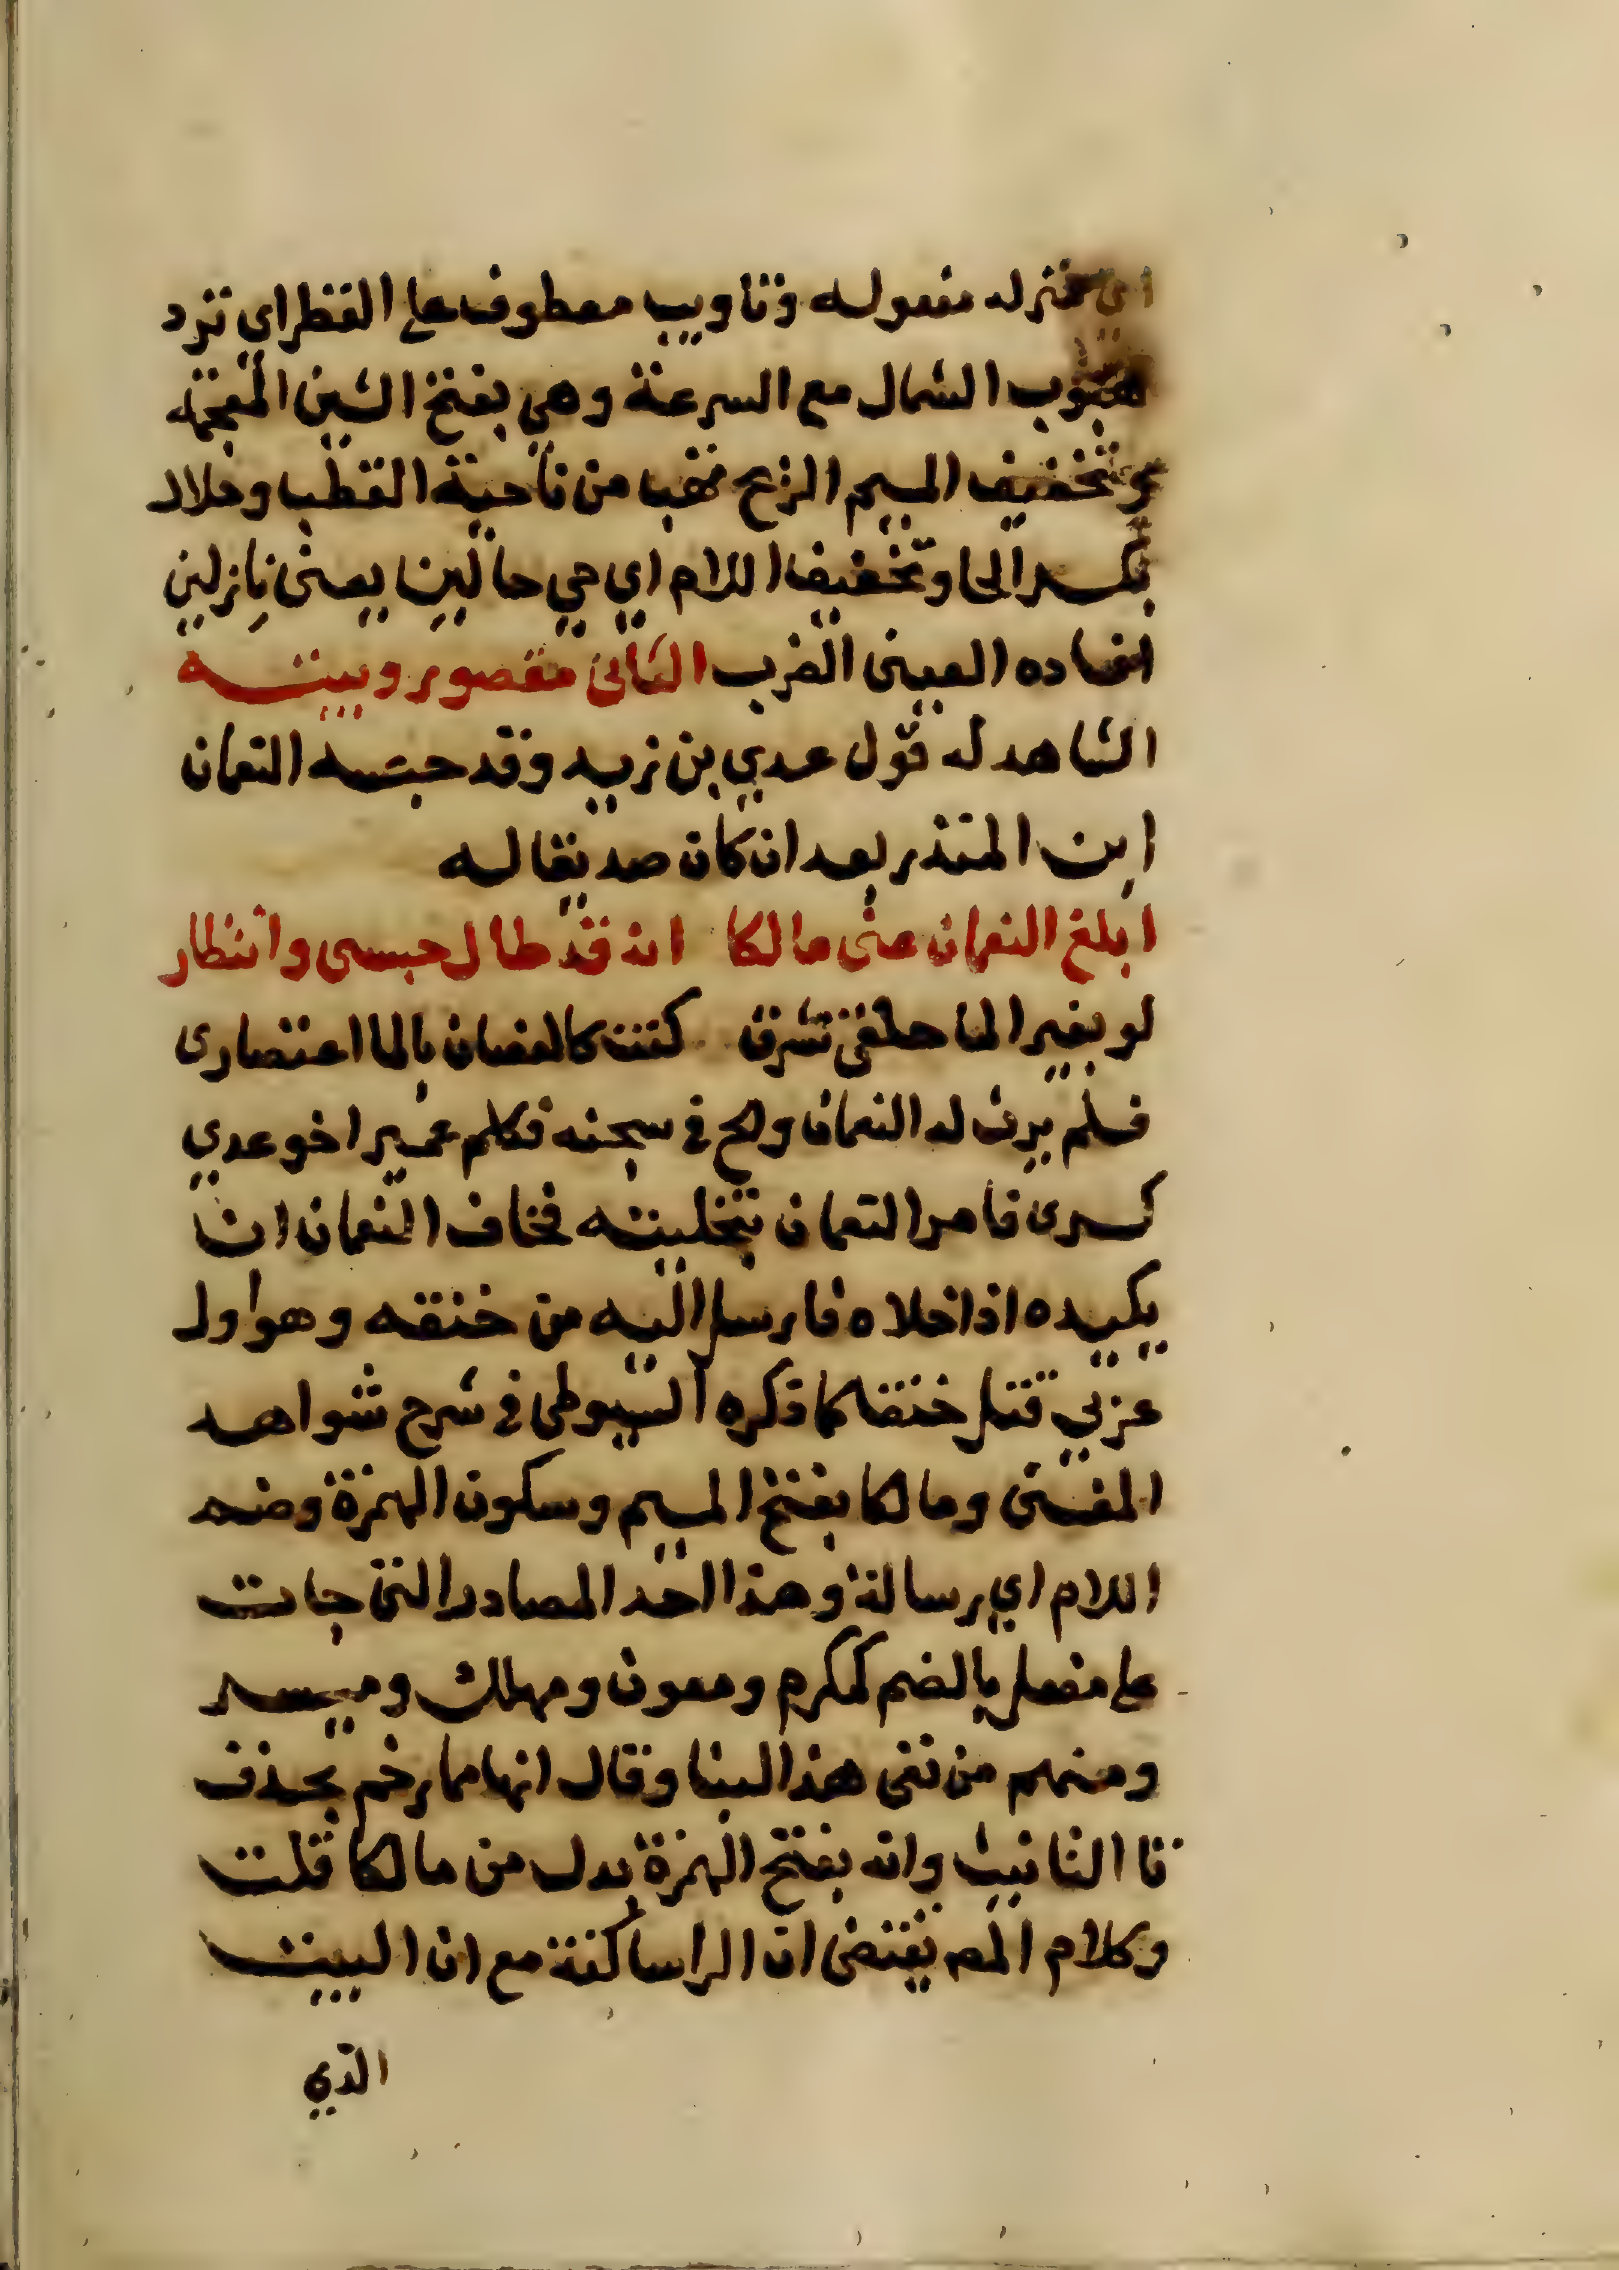 اي منزله مفعوله وتاويب معطوف على القطر اي تردد
هبوب الشمال مع السرعة وهي بفتح الشين المعجمة
وتخفيف الميم الريح تهب من ناحية القطب وحلال
بكسر الحا وتخفيف اللام اي حي حالين بمعنى نازلين
افاده العينى الضرب الثانى مقصور وبيته
الشاهد له قول عدي بن زيد وقد حبسه النعمان
ابن المنذر بعد ان كان صديقا له
ابلغ النعمان عنى مالكا انه قد طال حبسى وانتظار
لو بغير الما حلقى شرق كنت كالغصان بالما اعتصارى
فلم يرث له النعمان ولج فى سجنه فكلم عمير اخو عدي
كسرى فامر النعمان بتخليته فخاف النعمان ان
يكيده اذا خلاه فارسل اليه من خنقه وهو اول
عربي قتل خنقا كما ذكره السيوطى فى شرح شواهد
المغنى ومالكا بفتح الميم وسكون الهمزة وضم
اللام اي رسالة وهذا احد المصادر التى جات
على مفعل بالضم كمكرم ومعون ومهلك وميسر
ومنهم من نفى هذا البنا وقال انها مما رخم بحذف
تا التانيث وانه بفتح الهمزة بدل من مالكا قلت
وكلام المص يقتضى ان الرا ساكنة مع ان البيت
الذي